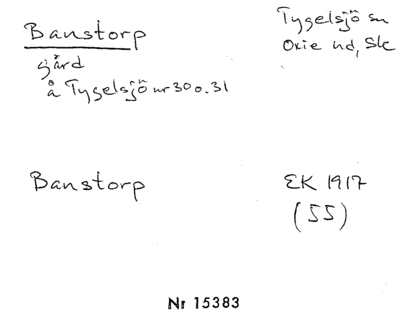 Banstorp
gård
å Tygelsjö nr 30 o. 31
Tygelsjö sn
Oxie hd, Sk
Banstorp
EK 1917
(55)
Nr 15383